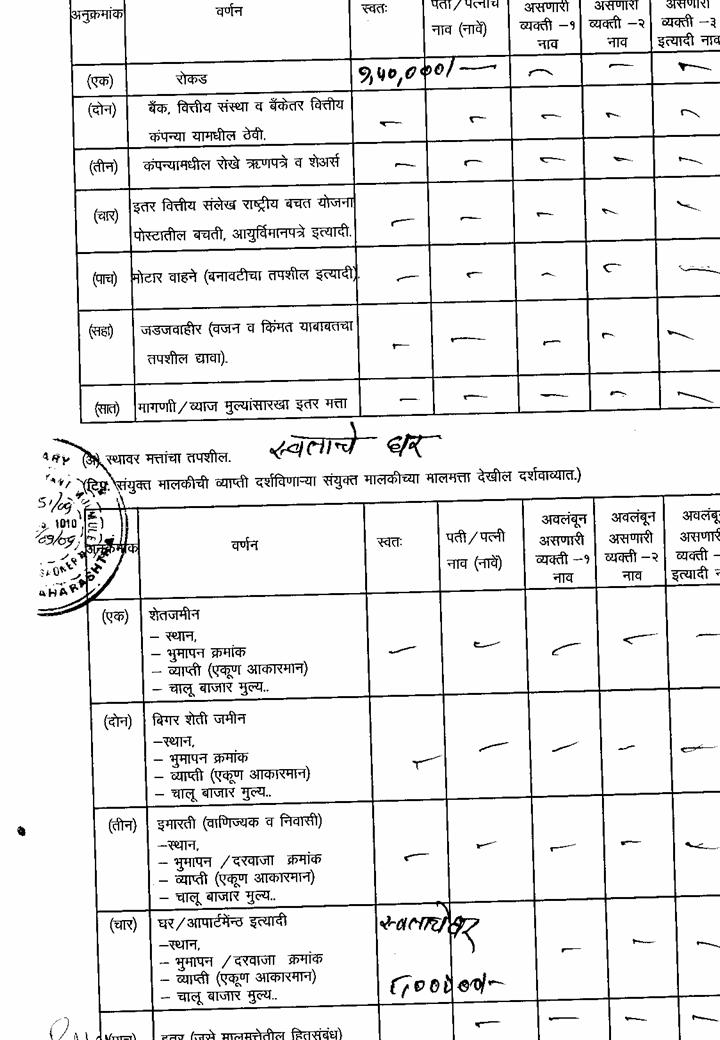 अनुक्रमांक वर्णन स्वतः पती/पत्नीचे नाव (नावें) असणारी व्यक्ती –१ नाव असणारी व्यक्ती –२ नाव असणारी व्यक्ती –३ इत्यादी नाव
(एक) रोकड १,५०,०००/— — — —
(दोन) बँक, वित्तीय संस्था व बँकेतर वित्तीय
कंपन्या यामधील ठेवी. — — — — —
(तीन) कंपन्यामधील रोखे ऋणपत्रे व शेअर्स — — — — —
(चार) इतर वित्तीय संलेख राष्ट्रीय बचत योजना
पोस्टातील बचती, आयुर्विमानपत्रे इत्यादी. — — — — —
(पाच) मोटार वाहने (बनावटीचा तपशील इत्यादी). — — — — —
(सहा) जडजवाहीर (वजन व किंमत याबाबतचा
तपशील द्यावा). — — — — —
(सात) मागणाी/व्याज मुल्यांसारखा इतर मत्ता — — — — —
(अ) स्थावर मत्तांचा तपशील. स्वताचे घर
(टिप्प्. संयुक्त मालकीची व्याप्ती दर्शविणाऱ्या संयुक्त मालकीच्या मालमत्ता देखील दर्शवाव्यात.)
1010
AHARASHTRA
अनुक्रमांक वर्णन स्वतः पती/पत्नी नाव (नावें) अवलंबून असणारी व्यक्ती –१ नाव अवलंबून असणारी व्यक्ती –२ नाव अवलंबून असणारी व्यक्ती – इत्यादी
(एक) शेतजमीन
– स्थान,
– भुमापन क्रमांक — — — — —
– व्याप्ती (एकूण आकारमान)
– चालू बाजार मुल्य..
(दोन) बिगर शेती जमीन
–स्थान,
– भुमापन क्रमांक — — — — —
– व्याप्ती (एकूण आकारमान)
– चालू बाजार मुल्य..
(तीन) इमारती (वाणिज्यक व निवासी)
–स्थान,
– भुमापन /दरवाजा क्रमांक — — — — —
– व्याप्ती (एकूण आकारमान)
– चालू बाजार मुल्य..
(चार) घर/आपार्टमेंन्ठ इत्यादी स्वताचे घर
–स्थान,
– भुमापन /दरवाजा क्रमांक — — —
– व्याप्ती (एकूण आकारमान)
– चालू बाजार मुल्य..
इतर (जसे मालमत्तेतील हितसंबंध) — — — —